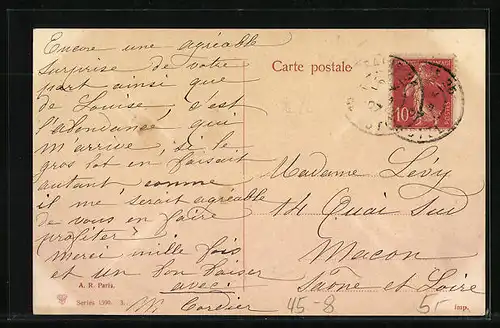 Encore une agréable
surprise de votre
part ainsi que
de Louise, c'est
l'abondance qui
m'arrive, si le
gros lot en faisait
autant, comme
il me serait agréable
de vous en faire
profiter!
Merci mille fois
et un bon baiser
avec
M. Cordier
A. R. Paris.
Series 1590. 3.
Carte postale
10
Madame Lévy
14 Quai Sud
Macon
Saône et Loire
45-8
5-
imp.